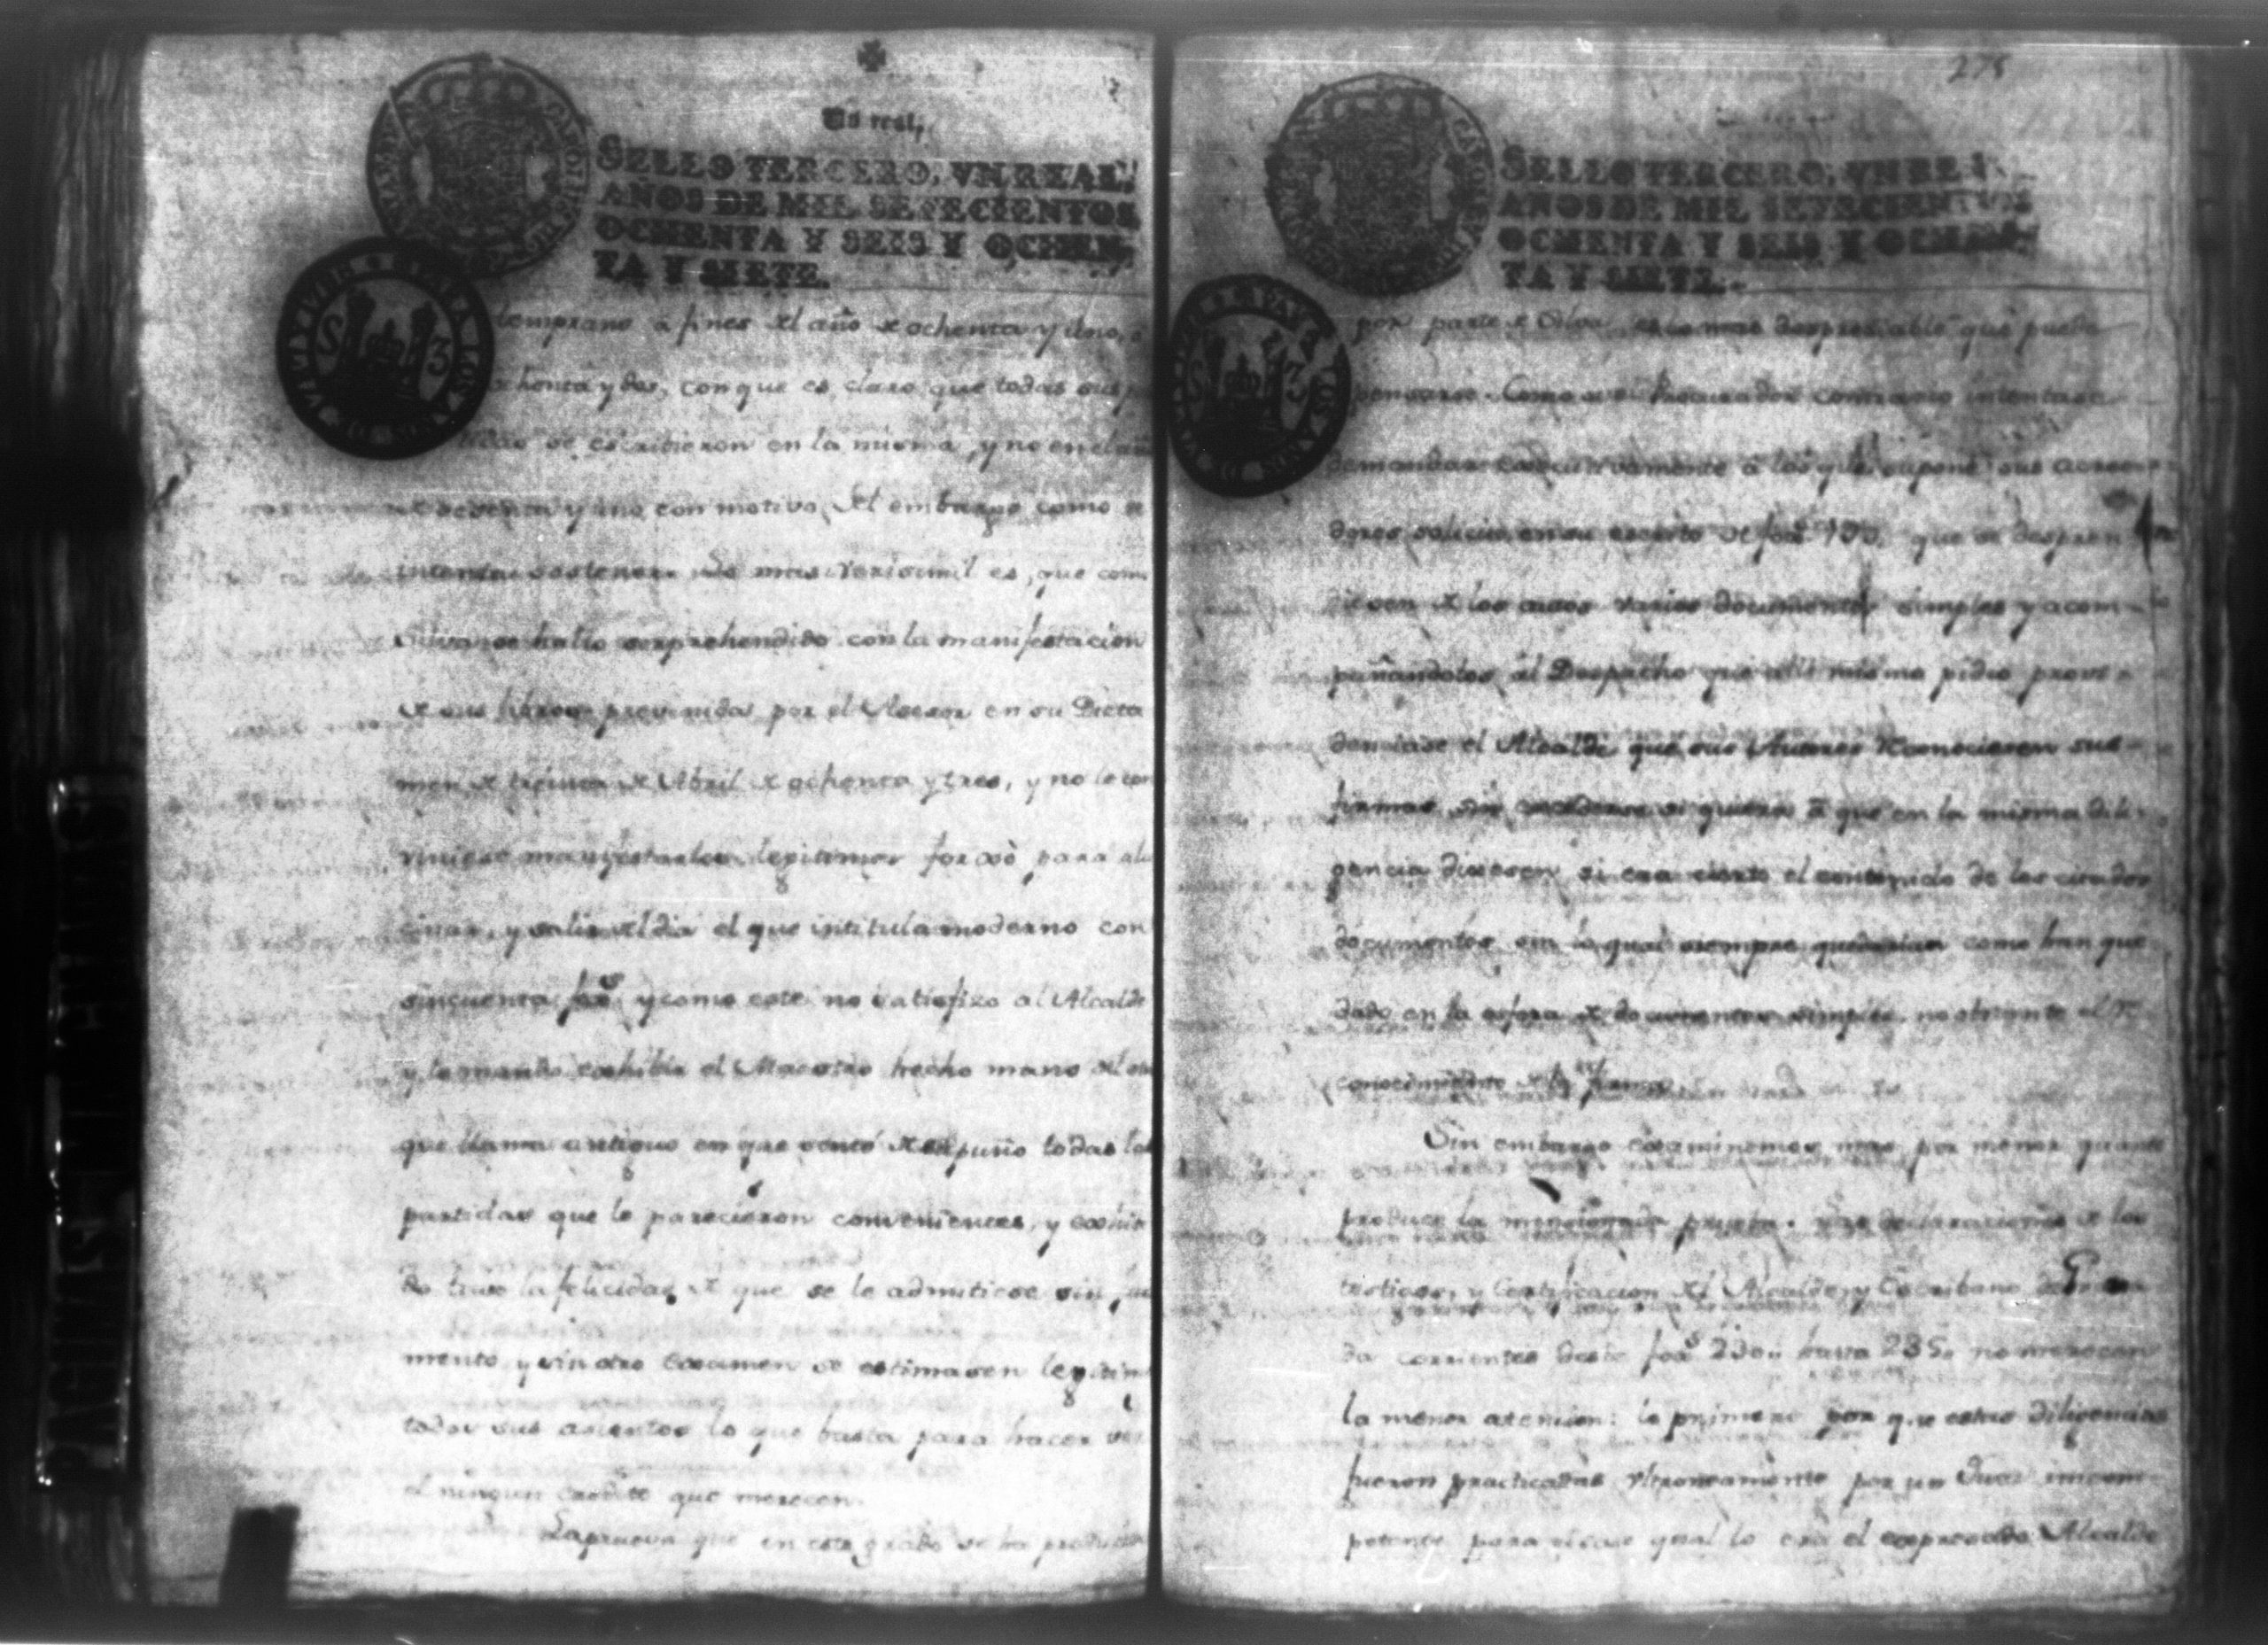 Un real,
SELLO TERCERO, VN REAL,
AÑOS DE MIL SETECIENTOS
OCHENTA Y SEIS Y OCHEN-
TA Y SIETE.
temprano á fines del año de ochenta y uno, o
ochenta y dos, con que es claro que todas sus p
tidas se escribieron en la misma, y no en el año
de ochenta y uno con motivo del embargo como se
intenta sostener. Lo mas verisimil es, que como
Silva se halló sorprehendido con la manifestacion
de sus libros prevenida por el Asesor en su Dicta
men de treinta de Abril de ochenta y tres, y no le con
viniese manifestarlos legitimos forxó para alu
cinar, y salir del dia el que intitula moderno con
sincuenta fox.s y como este no satisfizo al Alcalde
y le mandó exhibir el Maestro hecho mano del otro
que llama antiguo en que sentó de su puño todas las
partidas que le parecieron convenientes, y exhibi
do tuvo la felicidad de que se le admitiese sin jura
mento, y sin otro Examen se estimasen legitim
todos sus asientos lo que basta para hacer ver
el ningun credito que merecen.
La prueva que en este grado se ha producido
275
SELLO TERCERO, VN REAL
AÑOS DE MIL SETECIENTOS
OCHENTA Y SEIS Y OCHEN-
TA Y SIETE.
por parte de Silva, es lo mas despreciable que puede
pensarse. Como su Procurador contrario intentase
demandar executivamente á los que supone sus acree
dores solicitó en su escrito de fox.s 133. que se despren
diesen de los autos varios documentos simples y acom
pañandolos al Despacho que alli mismo pidió provi
denciase el Alcalde que sus Autores reconociesen sus
firmas, sin siquiera á que en la misma dili
gencia dixesen si era cierto el contenido de los citados
documentos, sin lo qual siempre quedarian como han que
dado en la esfera de documentos simples, no obstante el re
conocimiento de la firma.
Sin embargo examinemos mas por menor quanto
produce la mencionada prueba. Las declaraciones de los
testigos, y Certificacion del Alcalde, y Escribano de
da corrientes desde fox.s 230. hasta 235. no merecen
la menor atencion: lo primero por que estas diligencias
fueron practicadas ultroneamente por un Juez incom
petente para el caso qual lo era el expresado Alcalde